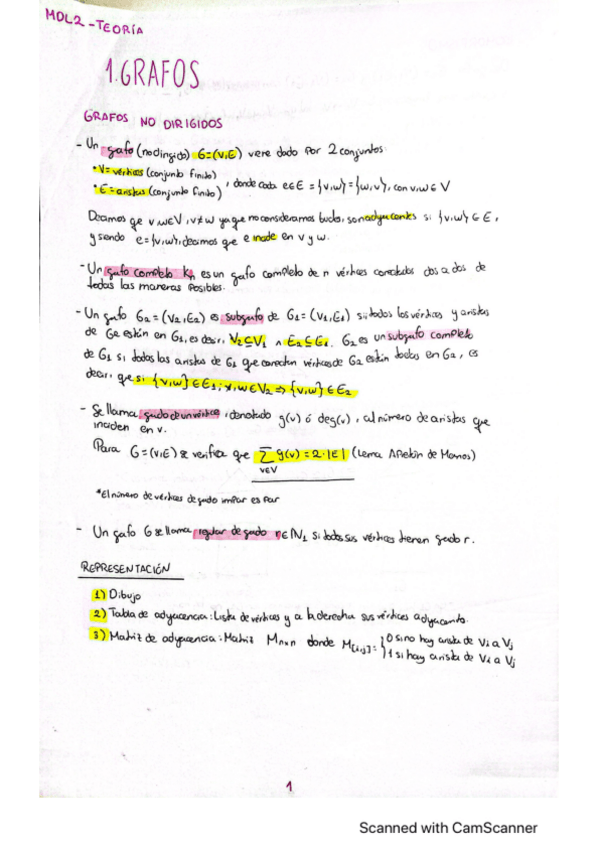 MDL2-TEORÍA
1.GRAFOS
GRAFOS NO DIRIGIDOS
- Un grafo (no dirigido) G=(V,E) viene dado por 2 conjuntos:
• V = vértices (conjunto finito)
• E = aristas (conjunto finito), donde cada e∈E = {v,w} = {w,v}, con v,w ∈ V
Decimos que v,w∈V, v≠w ya que no consideramos bucles, son adyacentes si {v,w} ∈ E,
y siendo e={v,w}, decimos que e incide en v y w.
- Un grafo completo Kn es un grafo completo de n vértices conectados dos a dos de
todas las maneras posibles.
- Un grafo G2=(V2,E2) es subgrafo de G1=(V1,E1) si todos los vértices y aristas
de G2 están en G1, es decir, V2⊆V1 ∧ E2⊆E1. G2 es un subgrafo completo
de G1 si todas las aristas de G1 que conecten vértices de G2 están todas en G2, es
decir, que si {v,w}∈E1; v,w∈V2 ⇒ {v,w}∈E2
- Se llama grado de un vértice, denotado g(v) ó deg(v), al número de aristas que
inciden en v.
Para G=(V,E) se verifica que ∑ g(v) = 2·|E| (Lema Apretón de Manos)
v∈V
*El número de vértices de grado impar es par
- Un grafo G se llama regular de grado r∈N1 si todos sus vértices tienen grado r.
REPRESENTACIÓN
1) Dibujo
2) Tabla de adyacencia: Lista de vértices y a la derecha sus vértices adyacentes.
3) Matriz de adyacencia: Matriz Mn×n donde M[i,j] = { 0 si no hay arista de Vi a Vj
1 si hay arista de Vi a Vj
1
Scanned with CamScanner